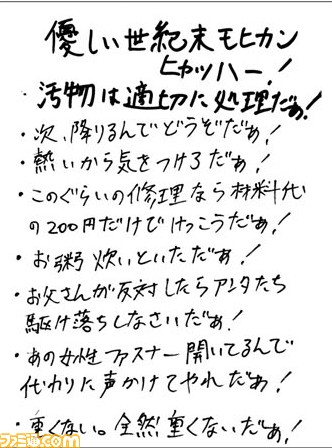 優しい世紀末モヒカン
ヒャッハー!
・汚物は適切に処理だぁ!
・次、降りるんでどうぞだぁ!
・熱いから気をつけろだぁ!
・このぐらいの修理なら材料代
の200円だけでけっこうだぁ!
・お粥炊いといただぁ!
・お父さんが反対したらアンタたち
駆け落ちしなさいだぁ!
・あの女性ファスナー開いてるんで
代わりに声かけてやれだぁ!
・重くない。全然重くないだぁ!
ファミ通.com